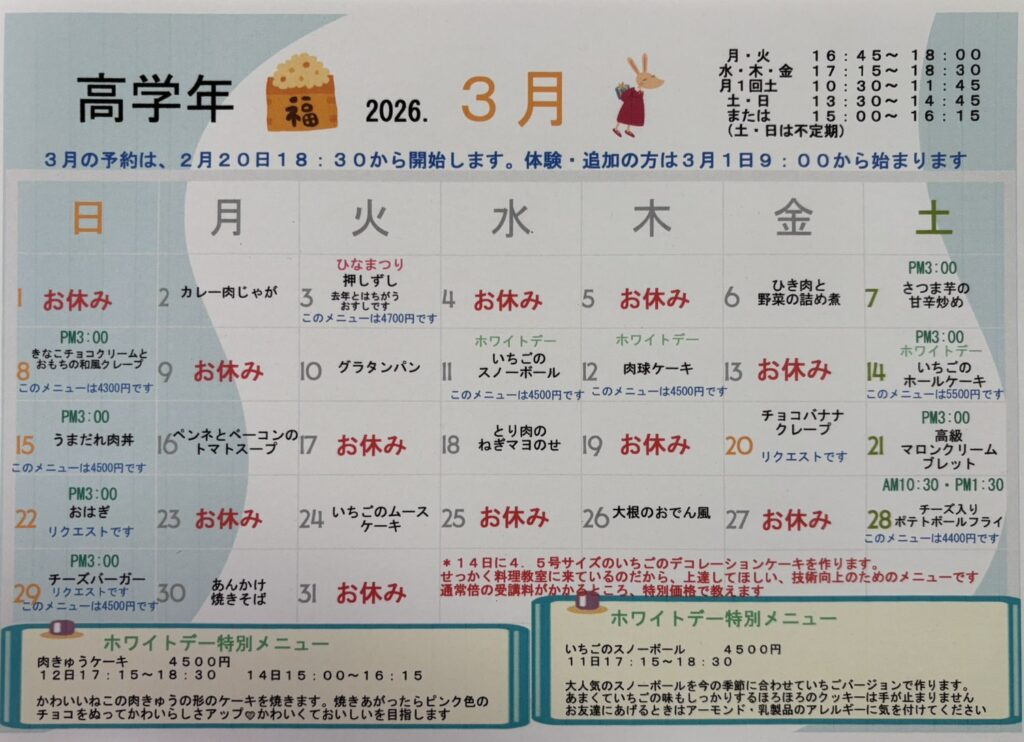 高学年
福
2026.
3月
月・火 16：45～ 18：00
水・木・金 17：15～ 18：30
月1回土 10：30～ 11：45
土・日 13：30～ 14：45
または 15：00～ 16：15
（土・日は不定期）
3月の予約は、2月20日18：30から開始します。体験・追加の方は3月1日9：00から始まります
日 月 火 水 木 金 土
1 お休み
2 カレー肉じゃが
ひなまつり
3 押しずし
去年とはちがう
おすしです
このメニューは4700円です
4 お休み
5 お休み
6 ひき肉と
野菜の詰め煮
PM3:00
7 さつま芋の
甘辛炒め
PM3:00
きなこチョコクリームと
8 おもちの和風クレープ
このメニューは4300円です
9 お休み
10 グラタンパン
ホワイトデー
11 いちごの
スノーボール
このメニューは4500円です
ホワイトデー
12 肉球ケーキ
このメニューは4500円です
13 お休み
PM3:00
ホワイトデー
14 いちごの
ホールケーキ
このメニューは5500円です
PM3:00
15 うまだれ肉丼
このメニューは4500円です
16 ペンネとベーコンの
トマトスープ
17 お休み
18 とり肉の
ねぎマヨのせ
19 お休み
チョコバナナ
クレープ
20 リクエストです
PM3:00
21 高級
マロンクリーム
ブレット
PM3:00
おはぎ
22 リクエストです
23 お休み
24 いちごのムース
ケーキ
25 お休み
26 大根のおでん風
27 お休み
AM10:30・PM1:30
28 チーズ入り
ポテトボールフライ
このメニューは4400円です
PM3:00
チーズバーガー
29 リクエストです
このメニューは4500円です
30 あんかけ
焼きそば
31 お休み
＊14日に4．5号サイズのいちごのデコレーションケーキを作ります。
せっかく料理教室に来ているのだから、上達してほしい、技術向上のためのメニューです
通常倍の受講料がかかるところ、特別価格で教えます
ホワイトデー特別メニュー
肉きゅうケーキ 4500円
12日17：15～18：30 14日15：00～16：15
かわいいねこの肉きゅうの形のケーキを焼きます。焼きあがったらピンク色の
チョコをぬってかわいらしさアップ♡かわいくておいしいを目指します
ホワイトデー特別メニュー
いちごのスノーボール 4500円
11日17：15～18：30
大人気のスノーボールを今の季節に合わせていちごバージョンで作ります。
あまくていちごの味もしっかりするほろほろのクッキーは手が止まりません
お友達にあげるときはアーモンド・乳製品のアレルギーに気を付けてください